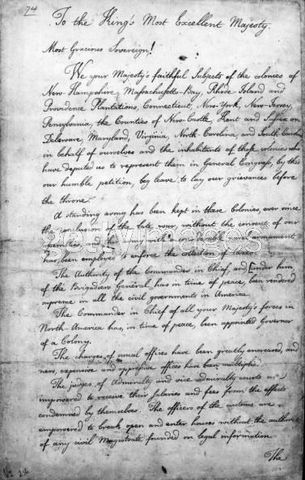 24
To the King's Most Excellent Majesty.
Most Gracious Sovereign!
We your Majesty's faithful Subjects of the colonies of
New-Hampshire, Massachusetts-Bay, Rhode Island and
Providence Plantations, Connecticut, New-York, New-Jersey,
Pennsylvania, the Counties of New-Castle, Kent and Sussex on
Delaware, Maryland, Virginia, North Carolina, and South Carolina
in behalf of ourselves and the inhabitants of those colonies who
have deputed us to represent them in General Congress, by this
our humble petition, beg leave to lay our grievances before
the throne.
A standing army has been kept in these Colonies, ever since
the conclusion of the late war, without the consent of our
assemblies; and this army with a considerable naval armament
has been employed to enforce the collection of taxes.
The Authority of the Commander in Chief, and, under him
of the Brigadiers General has in time of peace, been rendered
supreme in all the civil governments in America.
The Commander in Chief of all your Majesty's forces in
North America has, in time of peace, been appointed Governor
of a Colony.
The charges of usual offices have been greatly increased, and
new, expensive and oppressive offices have been multiplied.
The judges of Admiralty and vice admiralty courts are
impowered to receive their salaries and fees from the effects
condemned by themselves. The officers of the customs are
empowered to break open and enter houses without the authority
of any civil Magistrate founded on legal information.
The